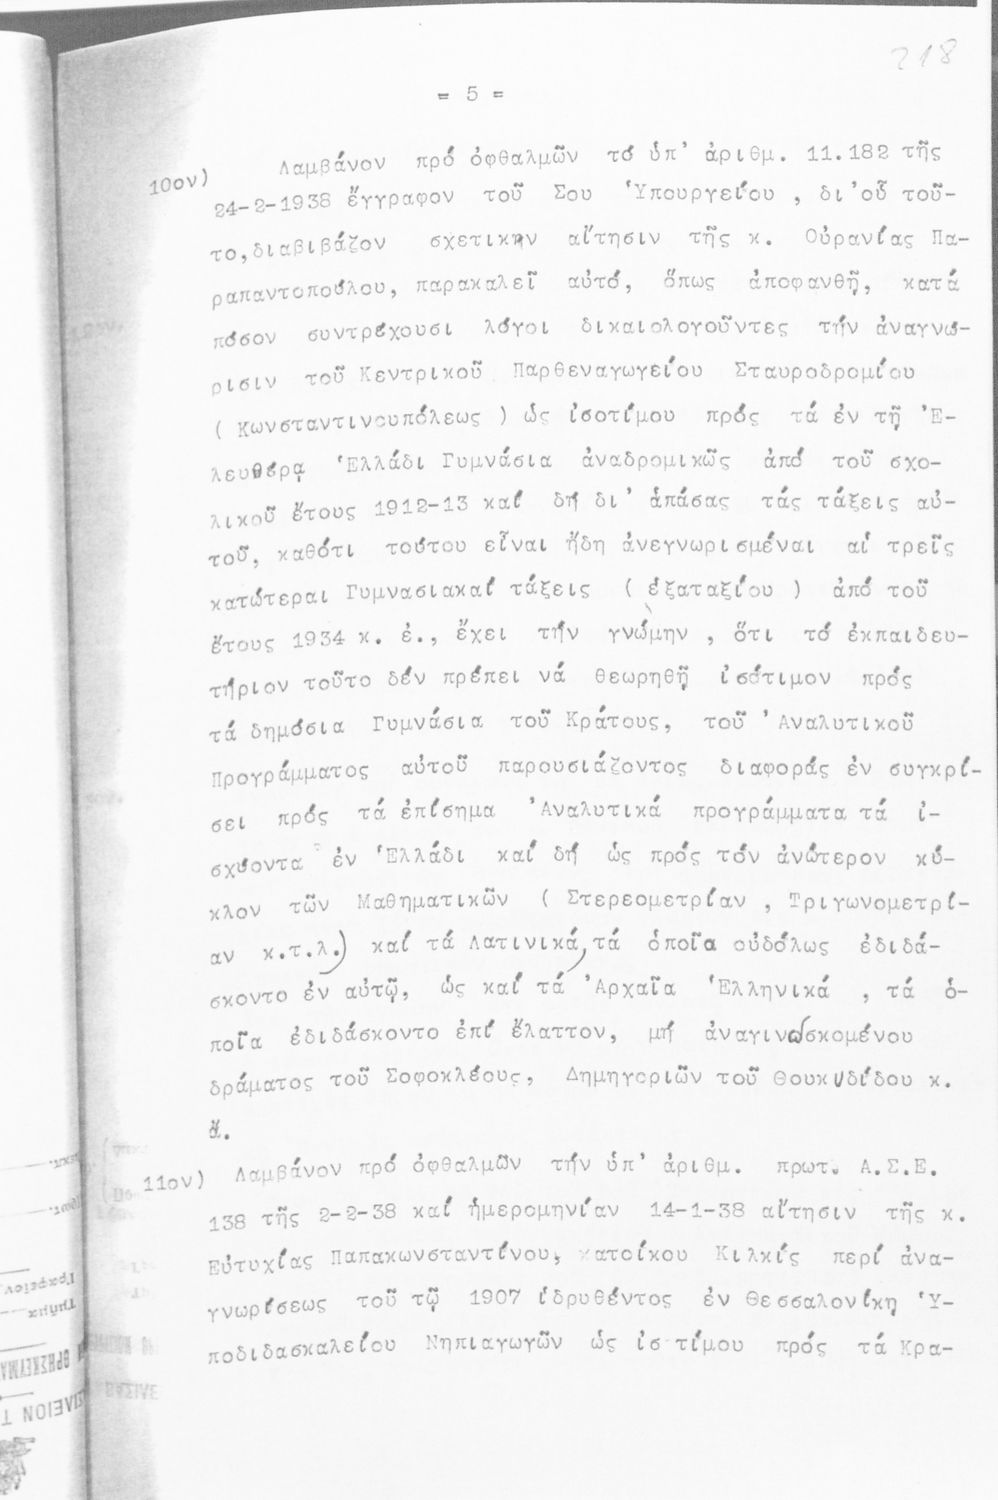 218
= 5 =
10ον) Λαμβάνον πρό ὀφθαλμῶν τό ὑπ' ἀριθμ. 11.182 τῆς
24-2-1938 ἔγγραφον τοῦ Σου Ὑπουργείου , δι'οὗ τοῦ-
το,διαβιβάζον σχετικην αἴτησιν τῆς κ. Οὐρανίας Πα-
ραπαντοπούλου, παρακαλεῖ αὐτό, ὅπως ἀποφανθῇ, κατά
πόσον συντρέχουσι λόγοι δικαιολογοῦντες τήν ἀναγνώ-
ρισιν τοῦ Κεντρικοῦ Παρθεναγωγείου Σταυροδρομίου
( Κωνσταντινουπόλεως ) ὡς ἰσοτίμου πρός τά ἐν τῇ Ἐ-
λευθέρᾳ Ἑλλάδι Γυμνάσια ἀναδρομικῶς ἀπό τοῦ σχο-
λικοῦ ἔτους 1912-13 καί δή δι' ἁπάσας τάς τάξεις αὐ-
τοῦ, καθότι τούτου εἶναι ἤδη ἀνεγνωρισμέναι αἱ τρεῖς
κατώτεραι Γυμνασιακαί τάξεις ( ἑξαταξίου ) ἀπό τοῦ
ἔτους 1934 κ. ἐ., ἔχει τήν γνώμην , ὅτι τό ἐκπαιδευ-
τήριον τοῦτο δέν πρέπει νά θεωρηθῇ ἰσότιμον πρός
τά δημόσια Γυμνάσια τοῦ Κράτους, τοῦ Ἀναλυτικοῦ
Προγράμματος αὐτοῦ παρουσιάζοντος διαφοράς ἐν συγκρί-
σει πρός τά ἐπίσημα Ἀναλυτικά προγράμματα τά ἰ-
σχύοντα ἐν Ἑλλάδι καί δή ὡς πρός τόν ἀνώτερον κύ-
κλον τῶν Μαθηματικῶν ( Στερεομετρίαν , Τριγωνομετρί-
αν κ.τ.λ.) καί τά Λατινικά,τά ὁποῖα οὐδόλως ἐδιδά-
σκοντο ἐν αὐτῷ, ὡς καί τά Ἀρχαῖα Ἑλληνικά , τά ὁ-
ποῖα ἐδιδάσκοντο ἐπί ἔλαττον, μή ἀναγινωσκομένου
δράματος τοῦ Σοφοκλέους, Δημηγοριῶν τοῦ Θουκυδίδου κ.
ἄ.
11ον) Λαμβάνον πρό ὀφθαλμῶν τήν ὑπ' ἀριθμ. πρωτ. Α.Σ.Ε.
138 τῆς 2-2-38 καί ἡμερομηνίαν 14-1-38 αἴτησιν τῆς κ.
Εὐτυχίας Παπακωνσταντίνου, κατοίκου Κιλκίς περί ἀνα-
γνωρίσεως τοῦ τῷ 1907 ἱδρυθέντος ἐν Θεσσαλονίκῃ Ὑ-
ποδιδασκαλείου Νηπιαγωγῶν ὡς ἰσ τίμου πρός τά Κρα-